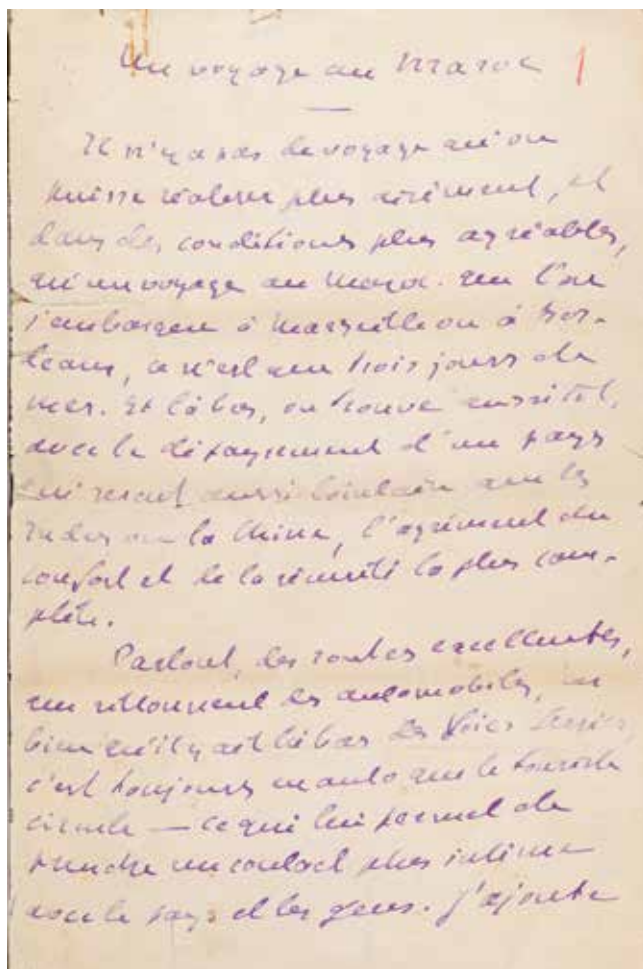 Un voyage au Maroc
Il n'y a pas de voyage qu'on
puisse réaliser plus aisément, et
dans des conditions plus agréables,
qu'un voyage au Maroc. Que l'on
s'embarque à Marseille ou à Bor-
deaux, ce n'est que trois jours de
mer. Et là bas, on trouve aussitôt,
avec le dépaysement d'un pays
qui serait aussi lointain que les
Indes ou la Chine, l'agrément du
confort et de la sécurité la plus com-
plète.
Partout, des routes excellentes,
que sillonnent les automobiles,
bien qu'il y ait là bas des voies ferrées,
c'est toujours en auto que le touriste
circule — ce qui lui permet de
prendre un contact plus intime
avec le pays et les gens. J'ajoute